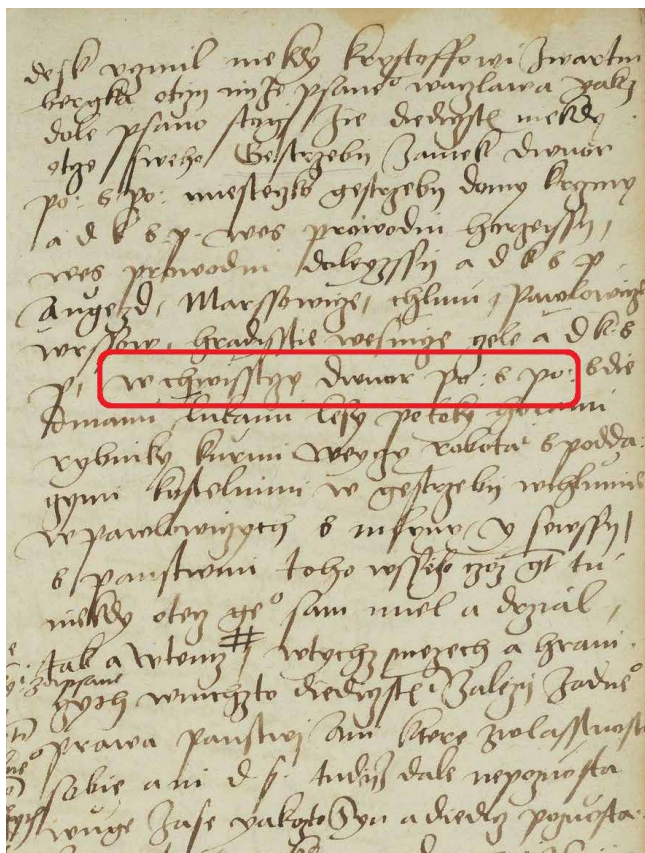 desk uczinil niekdy krysstoffowi zwartm
bergka otczy nijže psane° waczlawa yakz
dole psano stogij že diediczstwi niekdy
otcze sweho Gestrzebij zamek dwuor
po: s po: miesteczko gestrzebij domy krczmy
a d k s p. wes prowodin horzegssij,
wes prowodin doleyzssij a d k s p
Augezd, Marssowicze, chlum, pawlowicze
wrssow, hradisstie wesnicze zele a d k s
p, w chwisstcze dwuor po: s po: s die
dinami lukami lesy potoky horami
rybniky kurmi weyczy robotar s podda
gymi kostelnimi w gestrzebij wchlumie
wpawlowiczych s mlyny y sewssij,
s panstwim toho wsse°ho czoz gt tu
niekdy otecz ge° sam miel a drzial,
tak a wtomz # wtychz mezech a hrani
zapsane
gych wnichzto diediczstwi zalezij zadne°
prawa panstwi ani ktere zwlasstnosti
sobie ani d s. tudyz dale nepozuosta
wuge zase yakozto syn a diedicz pozuosta